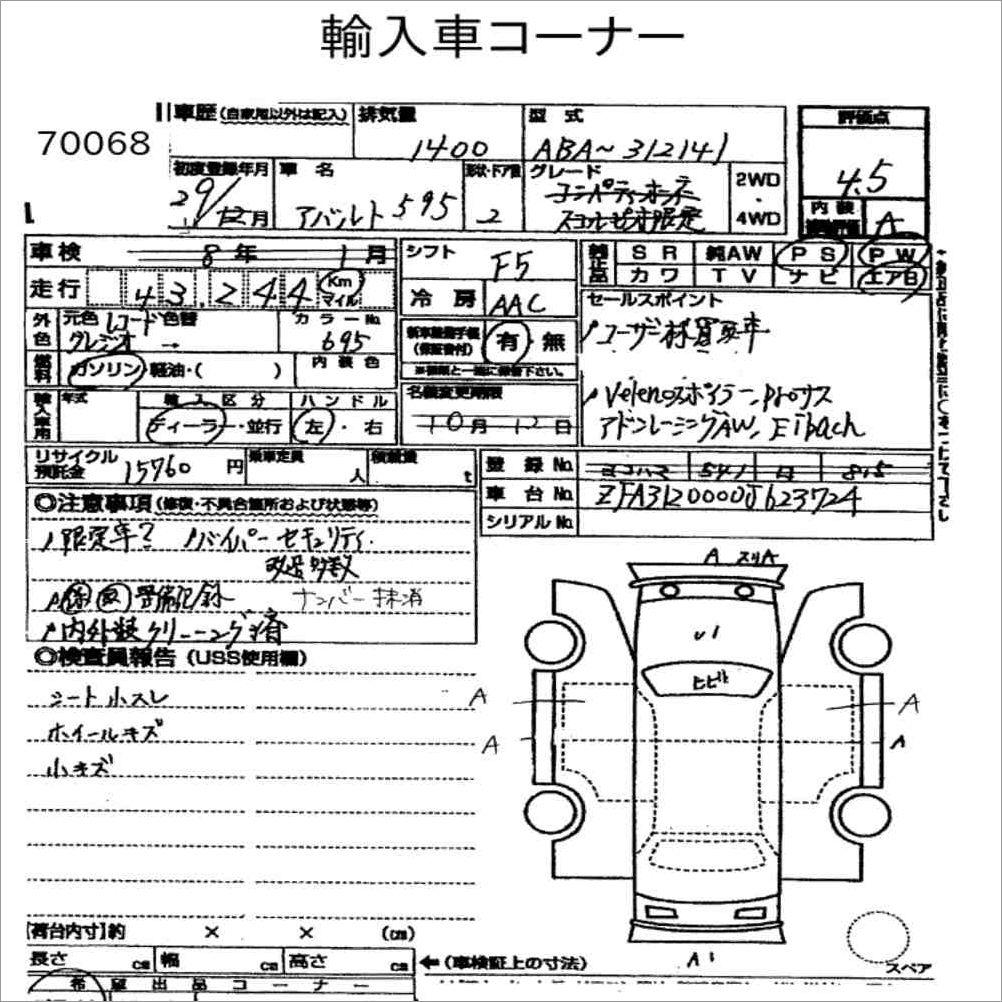 輸入車コーナー
70068
車歴(自家用以外は記入) 排気量 型式 評価点
1400 ABA~312141 4.5
初度登録年月 車名 形状・ドア数 グレード 2WD・4WD
29/12月 アバルト595 2 コンペティオーネ
スコルピオーネ限定
内装 A
車検 8年 1月
シフト F5
純正品 SR 純AW PS PW
カワ TV ナビ エア白
走行 43.244 Km マイル
冷房 AAC
セールスポイント
外色 元色 レコード 色替 カラーNo
グレジオ → 695
新車整備手帳(保証書付) 有・無
ユーザー様買取車
燃料 ガソリン・軽油・( ) 内装色
名義変更期限
10月12日
Velenoスポイラー、プロナス
アドバンレーシングAW、Eibach
輸入車用 年式 輸入区分 ハンドル
ディーラー・並行 左・右
リサイクル預託金 15760円 乗車定員 人 積載量 t
登録No ヨコハマ 541
車台No ZFA3120000J623724
シリアルNo
◎注意事項(修復・不具合箇所および状態等)
限定車? バイパーセキュリティ
改造多数
保 取 整備記録 ナンバー抹消
内外装クリーニング済
◎検査員報告(USS使用欄)
シート小スレ
ホイールキズ
小キズ
A スリA
ヒビ
A A
A A
A1
スペア
[荷台内寸]約 × × (cm)
長さ cm 幅 cm 高さ cm ←(車検証上の寸法)
希望出品コーナー